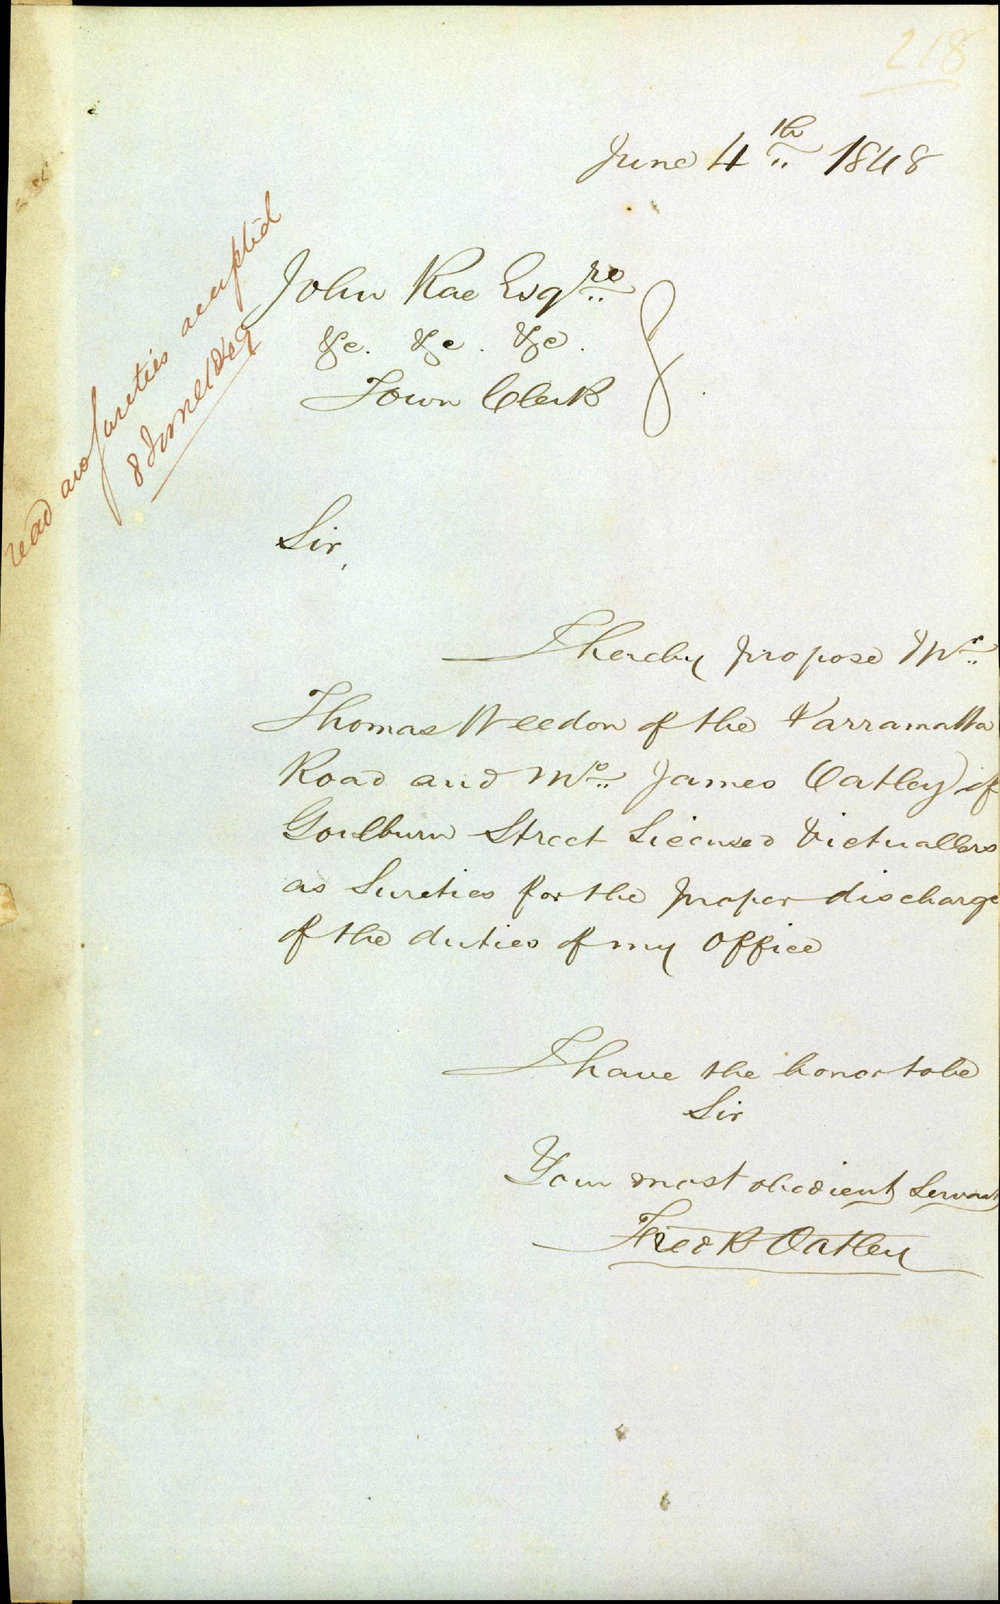 218
June 4th 1848
John Rae Esqre
&c. &c. &c.
Town Clerk
read and sureties accepted
8 June
Sir,
I hereby propose Mr
Thomas Weedon of the Parramatta
Road and Mr James Oatley of
Goulburn Street Licensed Victuallers
as Sureties for the proper discharge
of the duties of my Office
I have the honor to be
Sir
Your most obedient Servant
Fredk Oatley